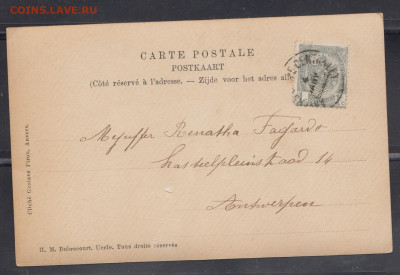 COINS.LAVE.RU
CARTE POSTALE
POSTKAART
(Côté réservé à l'adresse. — Zijde voor het adres
Mejuffer Renatha Fagardo
Kasteelpleinstraad 14
Antwerpen
Cliché Gustave Piron, Anvers.
H. M. Debrocourt, Uccle. Tous droits réservés